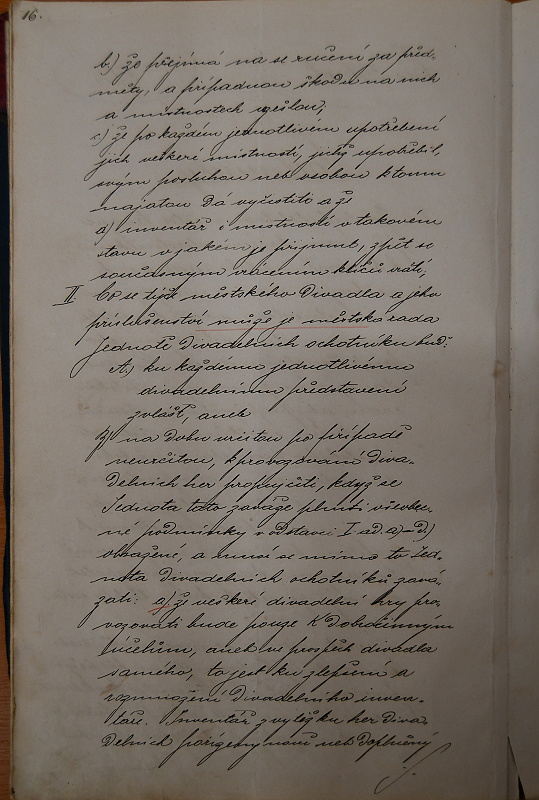 16.
b.) že přejímá na se ručení za před-
měty, a případnou škodu na nich
a místnostech vzešlou;
c.) že po každém jednotlivém upotřebení
jich veškeré místnosti, jichž upotřebil,
svým posluhou neb osobou k tomu
najatou dá vyčistiti a že
d) inventář i místnosti v takovém
stavu v jakém je přijmul, zpět se
současným vrácením klíčů vrátí;
II. Co se týče městského divadla a jeho
příslušenství může je městská rada
Jednotě divadelních ochotníků buď:
A.) ku každému jednotlivému
divadelnímu představení
zvlášť, aneb
B) na dobu určitou po případě
neurčitou, k provozování diva-
delních her propůjčiti, když se
Jednota tato zaváže plniti všeobec-
né podmínky v odstavci I ad. a)–d.)
obsažené, a musí se mimo to Jed-
nota divadelních ochotníků zavá-
zati: a) že veškeré divadelní hry pro-
vozovati bude pouze k dobročinným
účelům, aneb ve prospěch divadla
samého, to jest ku zlepšení a
rozmnožení divadelního inven-
táře. Inventář z výtěžku her diva-
delních pořízený nový neb doplněný